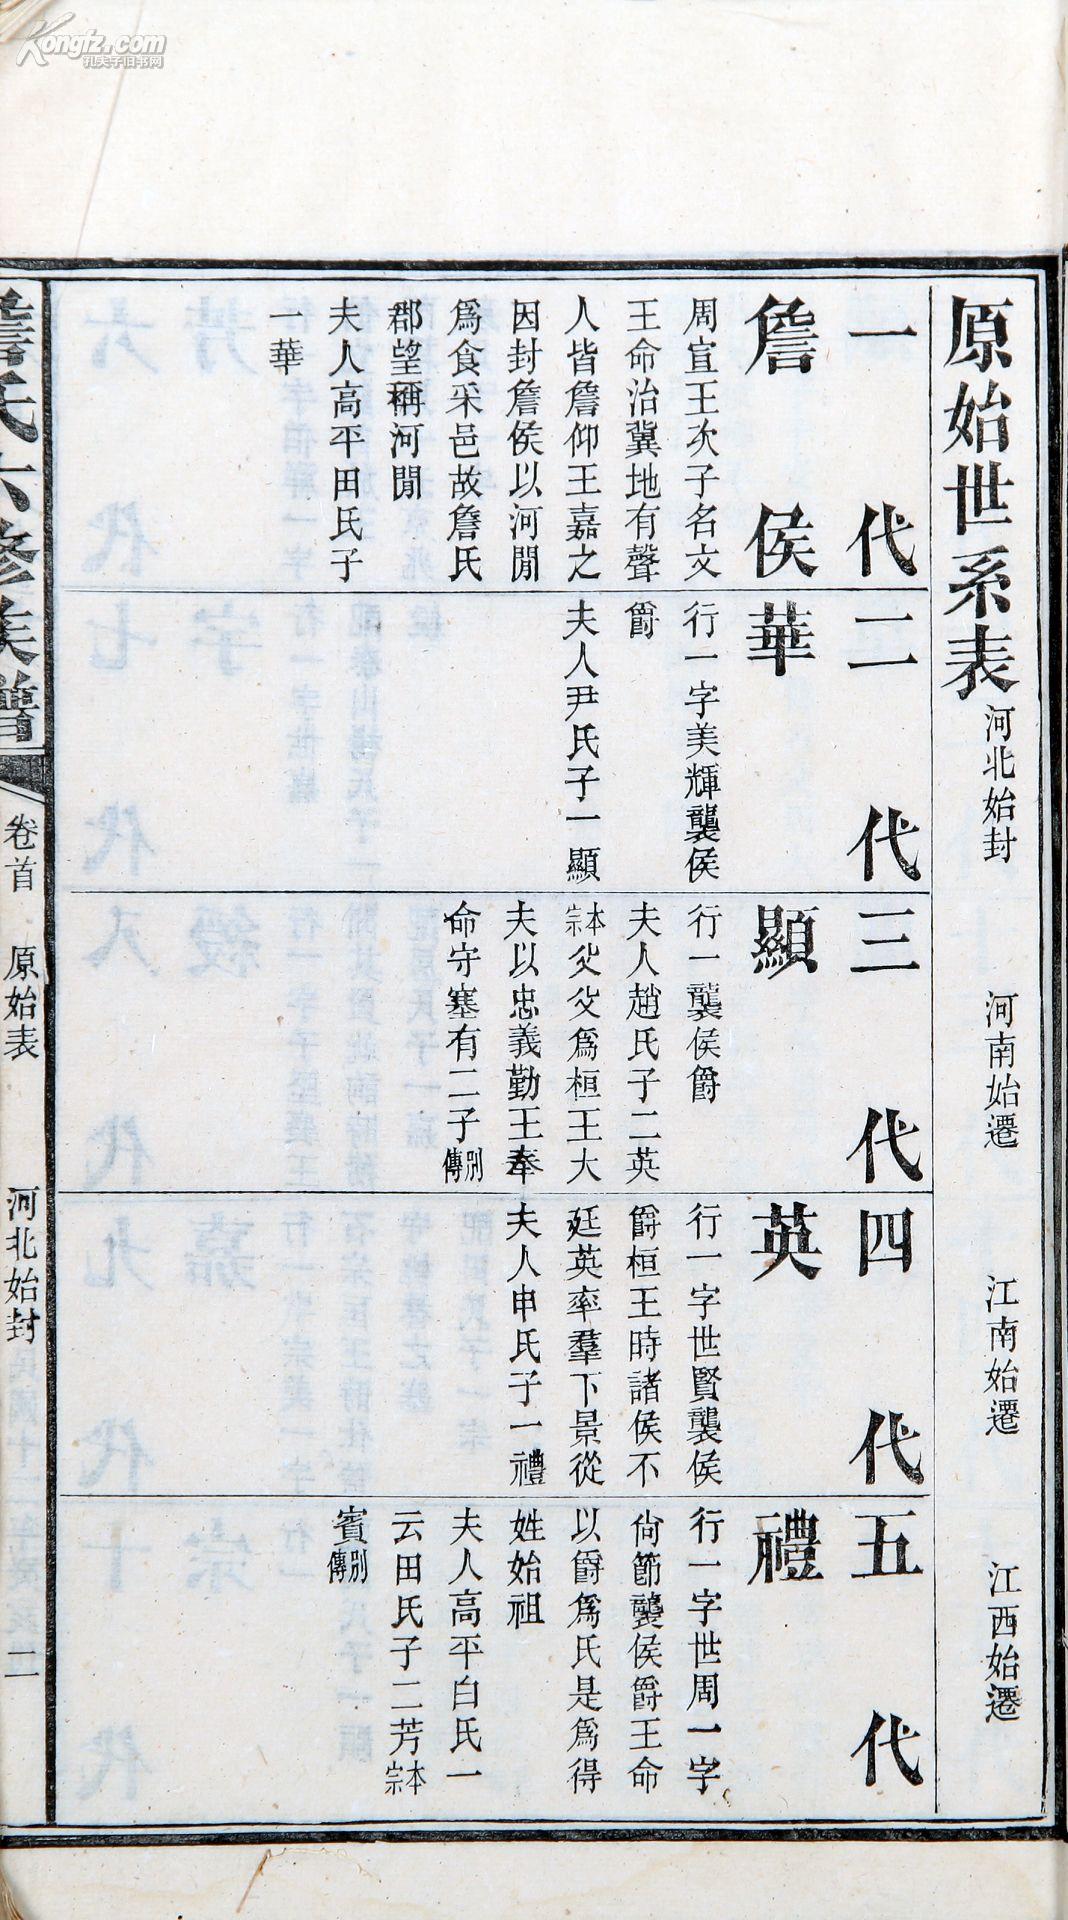 Kongfz.com
孔夫子旧书网
原始世系表 河北始封 河南始遷 江南始遷 江西始遷
一代
詹侯
周宣王次子名文
王命治冀地有聲
人皆詹仰王嘉之
因封詹侯以河閒
爲食采邑故詹氏
郡望稱河閒
夫人高平田氏子
一華
二代
華
行一字美輝襲侯
爵
夫人尹氏子一顯
三代
顯
行一襲侯爵
夫人趙氏子二英
本宗父父爲桓王大
夫以忠義勤王奉
命守塞有二子別傳
四代
英
行一字世賢襲侯
爵桓王時諸侯不
廷英率羣下景從
夫人申氏子一禮
五代
禮
行一字世周一字
尙節襲侯爵王命
以爵爲氏是爲得
姓始祖
夫人高平白氏一
云田氏子二芳本宗
賓別傳
詹氏六修族譜 卷首 原始表 河北始封 二